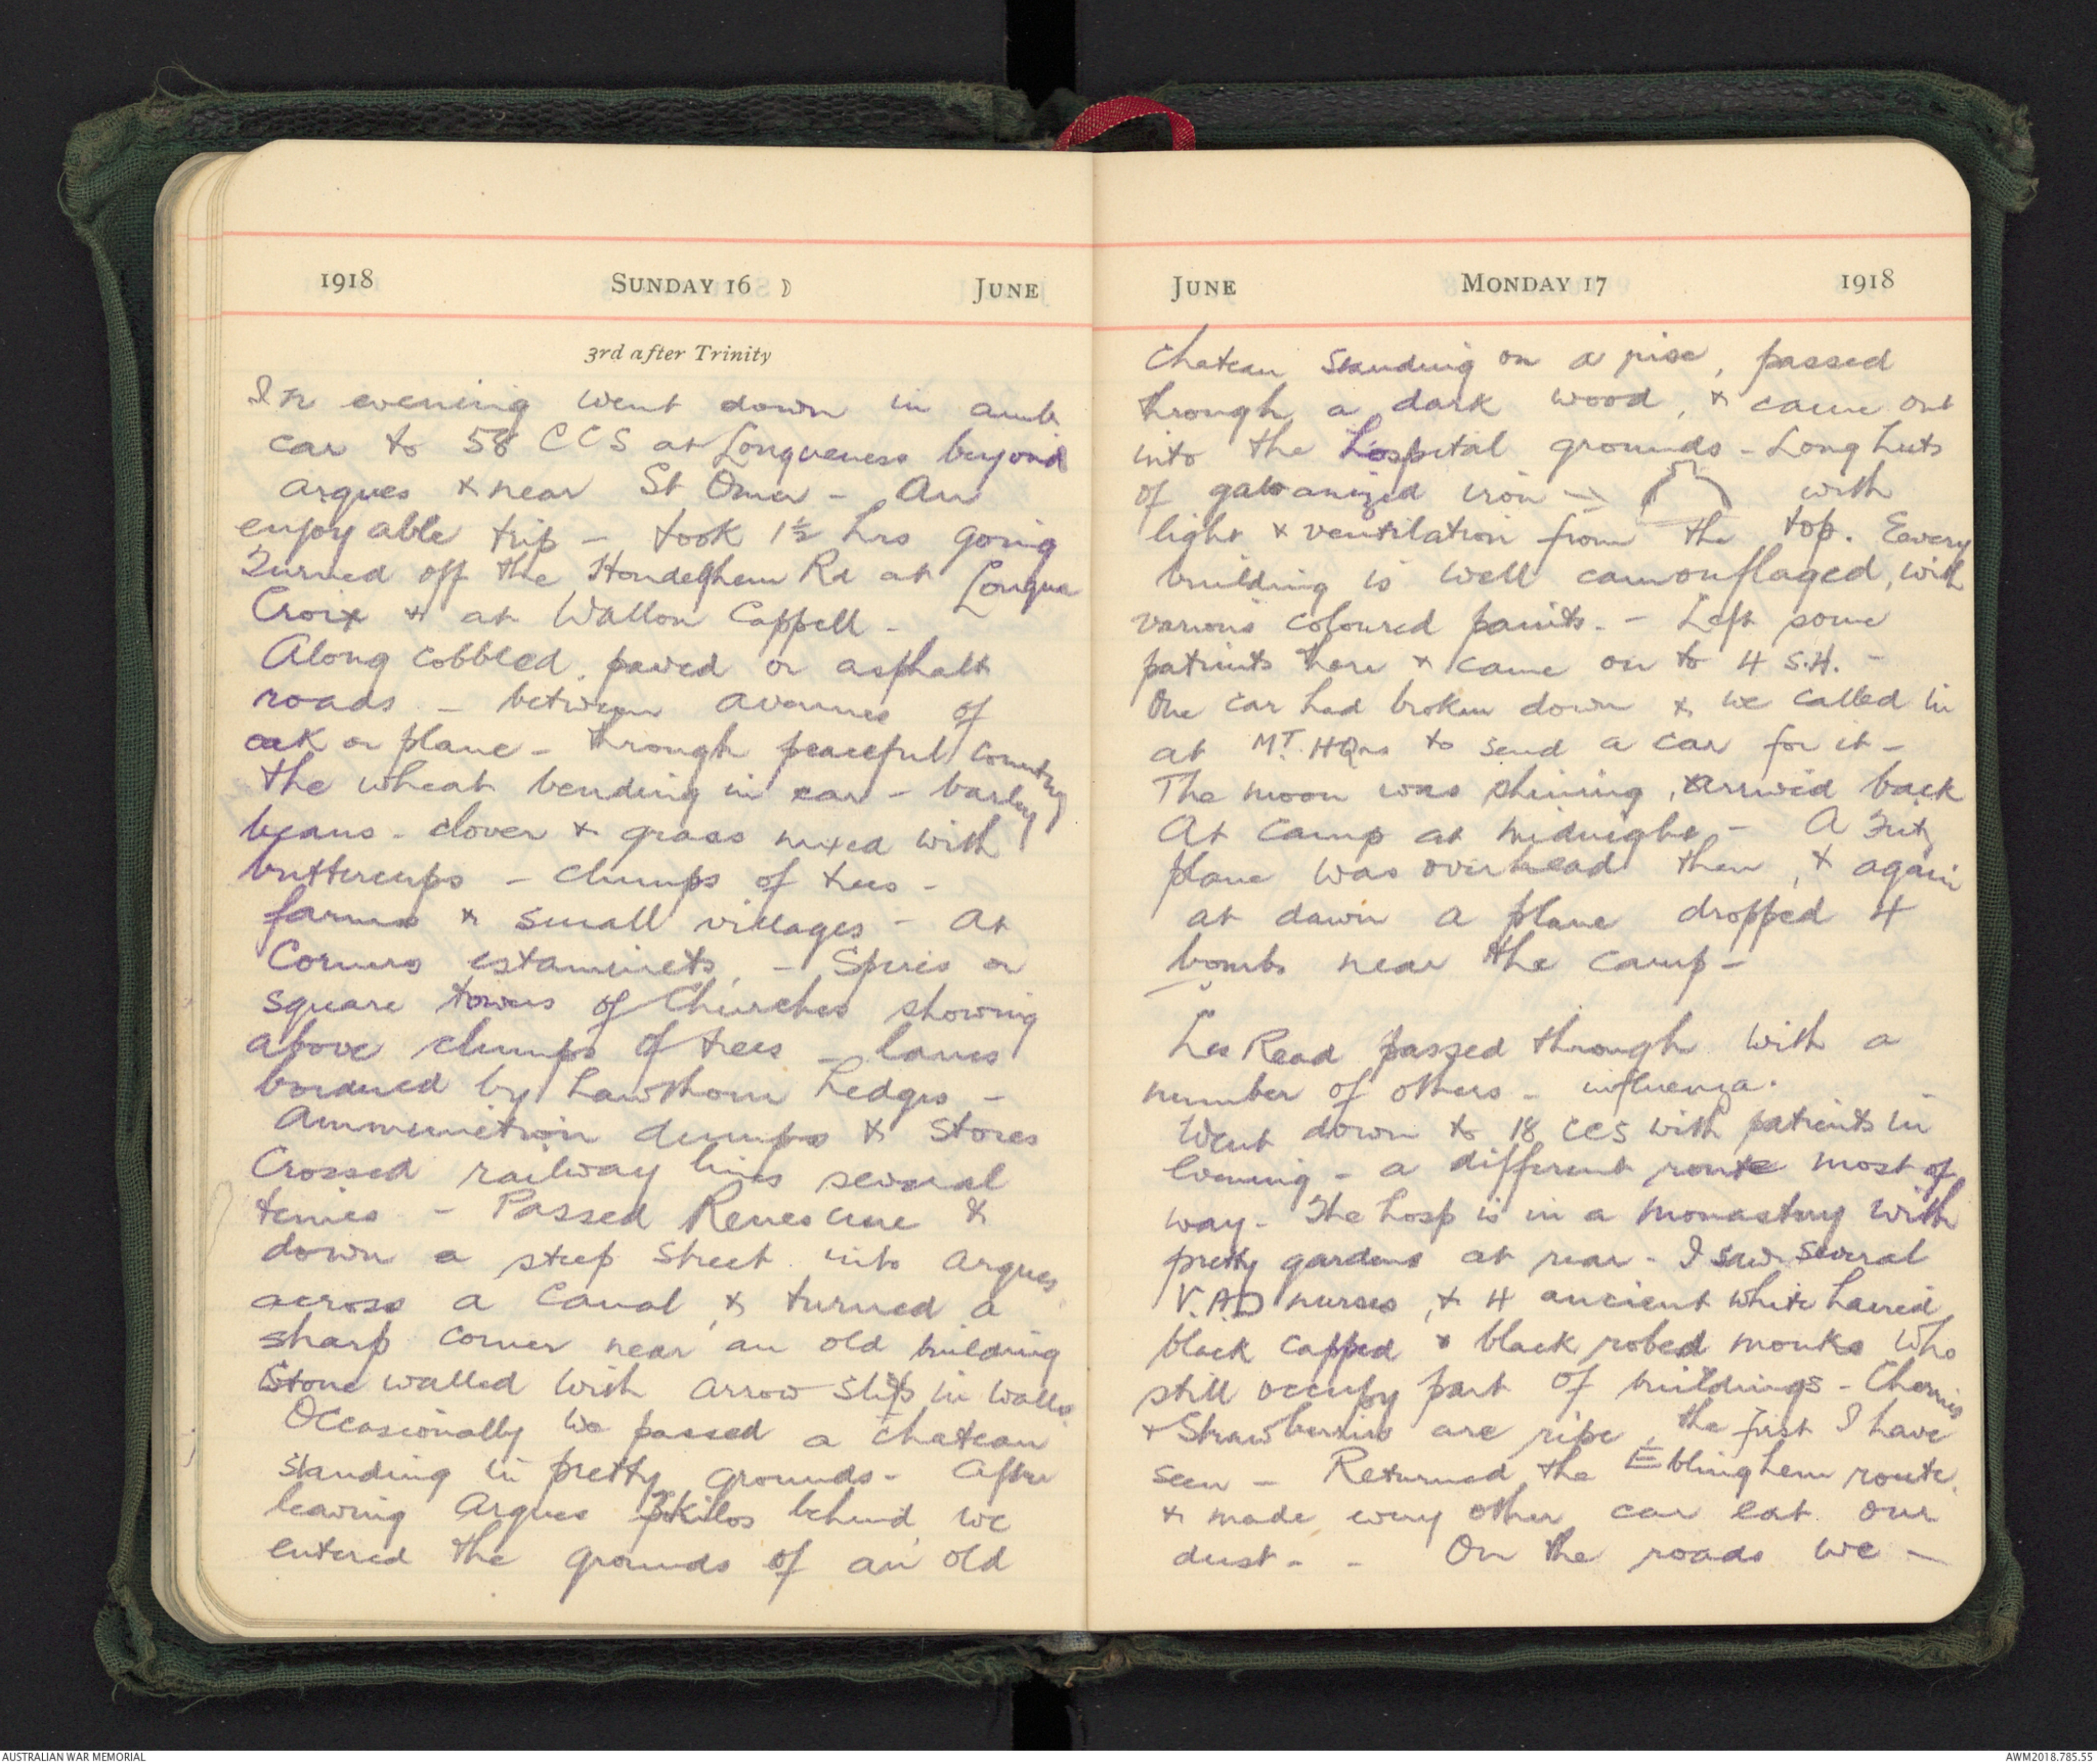 1918 SUNDAY 16 JUNE
3rd after Trinity
In evening went down in amb
car to 58 CCS at Longueness beyond
Arques & near St Omer - An
enjoyable trip - took 1½ hrs going
Turned off the Hondeghem Rd at Longue
Croix & at Wallon Cappell -
Along cobbled, paved or asphalt
roads - between avenues of
oak or plane - through peaceful country
the wheat bending in ear - barley
beans - clover & grass mixed with
buttercups - clumps of trees -
farms & small villages - At
Corners estaminets, - Spires or
square towers of Churches showing
above clumps of trees - lanes
bordered by hawthorn hedges -
Ammunition dumps & Stores
Crossed railway lines several
times - Passed Renescure &
down a steep Street into Arques
across a Canal, & turned a
sharp corner near an old building
Stone walled with arrow slits in walls
Occasionally we passed a chateau
standing in pretty grounds - After
leaving Arques 3kilos behind we
entered the grounds of an old
JUNE MONDAY 17 1918
Chateau standing on a rise, passed
through a dark wood, & came out
into the hospital grounds - Long huts
of galvanized iron - with
light & ventilation from the top. Eavery
building is well camouflaged, with
various coloured paints. - Left some
patients there & came on to 4 S.H. -
One car had broken down & we called in
at MT. HQrs to send a car for it -
The moon was shining, & arrived back
At Camp at midnight - A Fritz
plane was overhead then, & again
at dawn a plane dropped 4
bombs near the camp -
Les Read passed through with a
number of others - influenza.
Went down to 18 CCS with patients in
Evening - a different route most of
way - The hosp is in a monastery with
pretty gardens at rear - I saw several
V.A.D nurses, & 4 ancient white haired
black capped & black robed monks who
still occupy part of buildings - Cherries
& Strawberries are ripe, the first I have
seen - Returned the Eblinghem route,
& made every other car eat our
dust - - On the roads we -
AUSTRALIAN WAR MEMORIAL
AWM2018.785.55